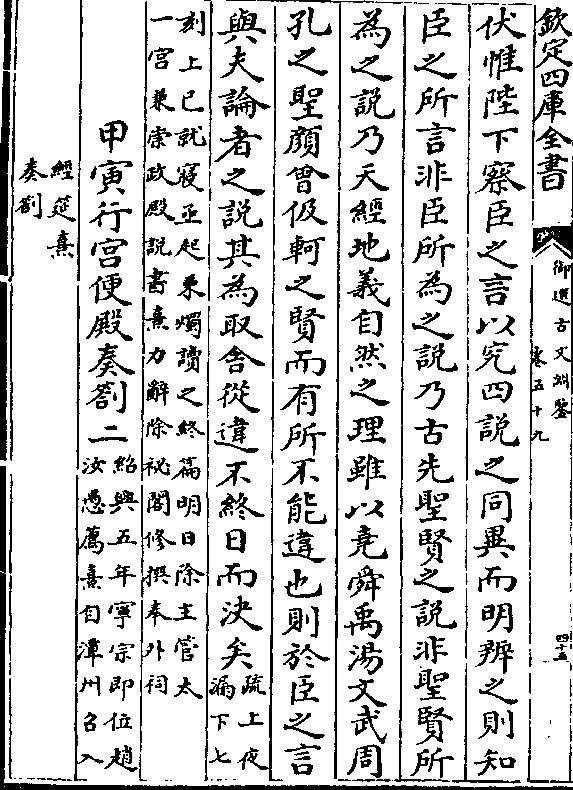 欽定四庫全書
御選古文淵鑒
卷五十九
四十五
伏惟陛下察臣之言以究四說之同異而明辨之則知
臣之所言非臣所為之說乃古先聖賢之說非聖賢所
為之說乃天經地義自然之理雖以堯舜禹湯文武周
孔之聖顔曾伋軻之賢而有所不能違也則於臣之言
與夫論者之說其為取舍從違不終日而決矣
疏上夜
漏下七
刻上已就寢亟起秉燭讀之終篇明日除主管太
一宫兼崇政殿說書熹力辭除祕閣修撰奉外祠
甲寅行宫便殿奏劄二
紹興五年寧宗即位趙
汝愚薦熹自潭州召入
經筵熹
奏劄